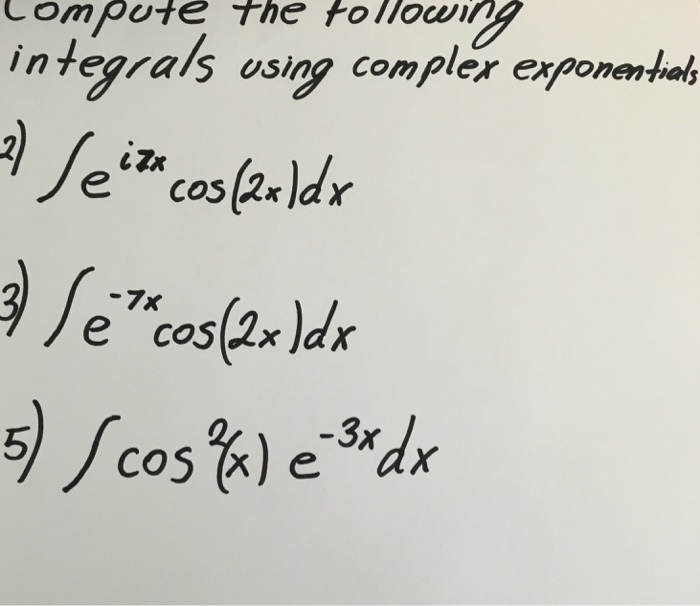 Compute the following
integrals using complex exponentials
2) ∫e^{i7x} cos(2x)dx
3) ∫e^{-7x} cos(2x)dx
5) ∫cos²(x) e^{-3x} dx